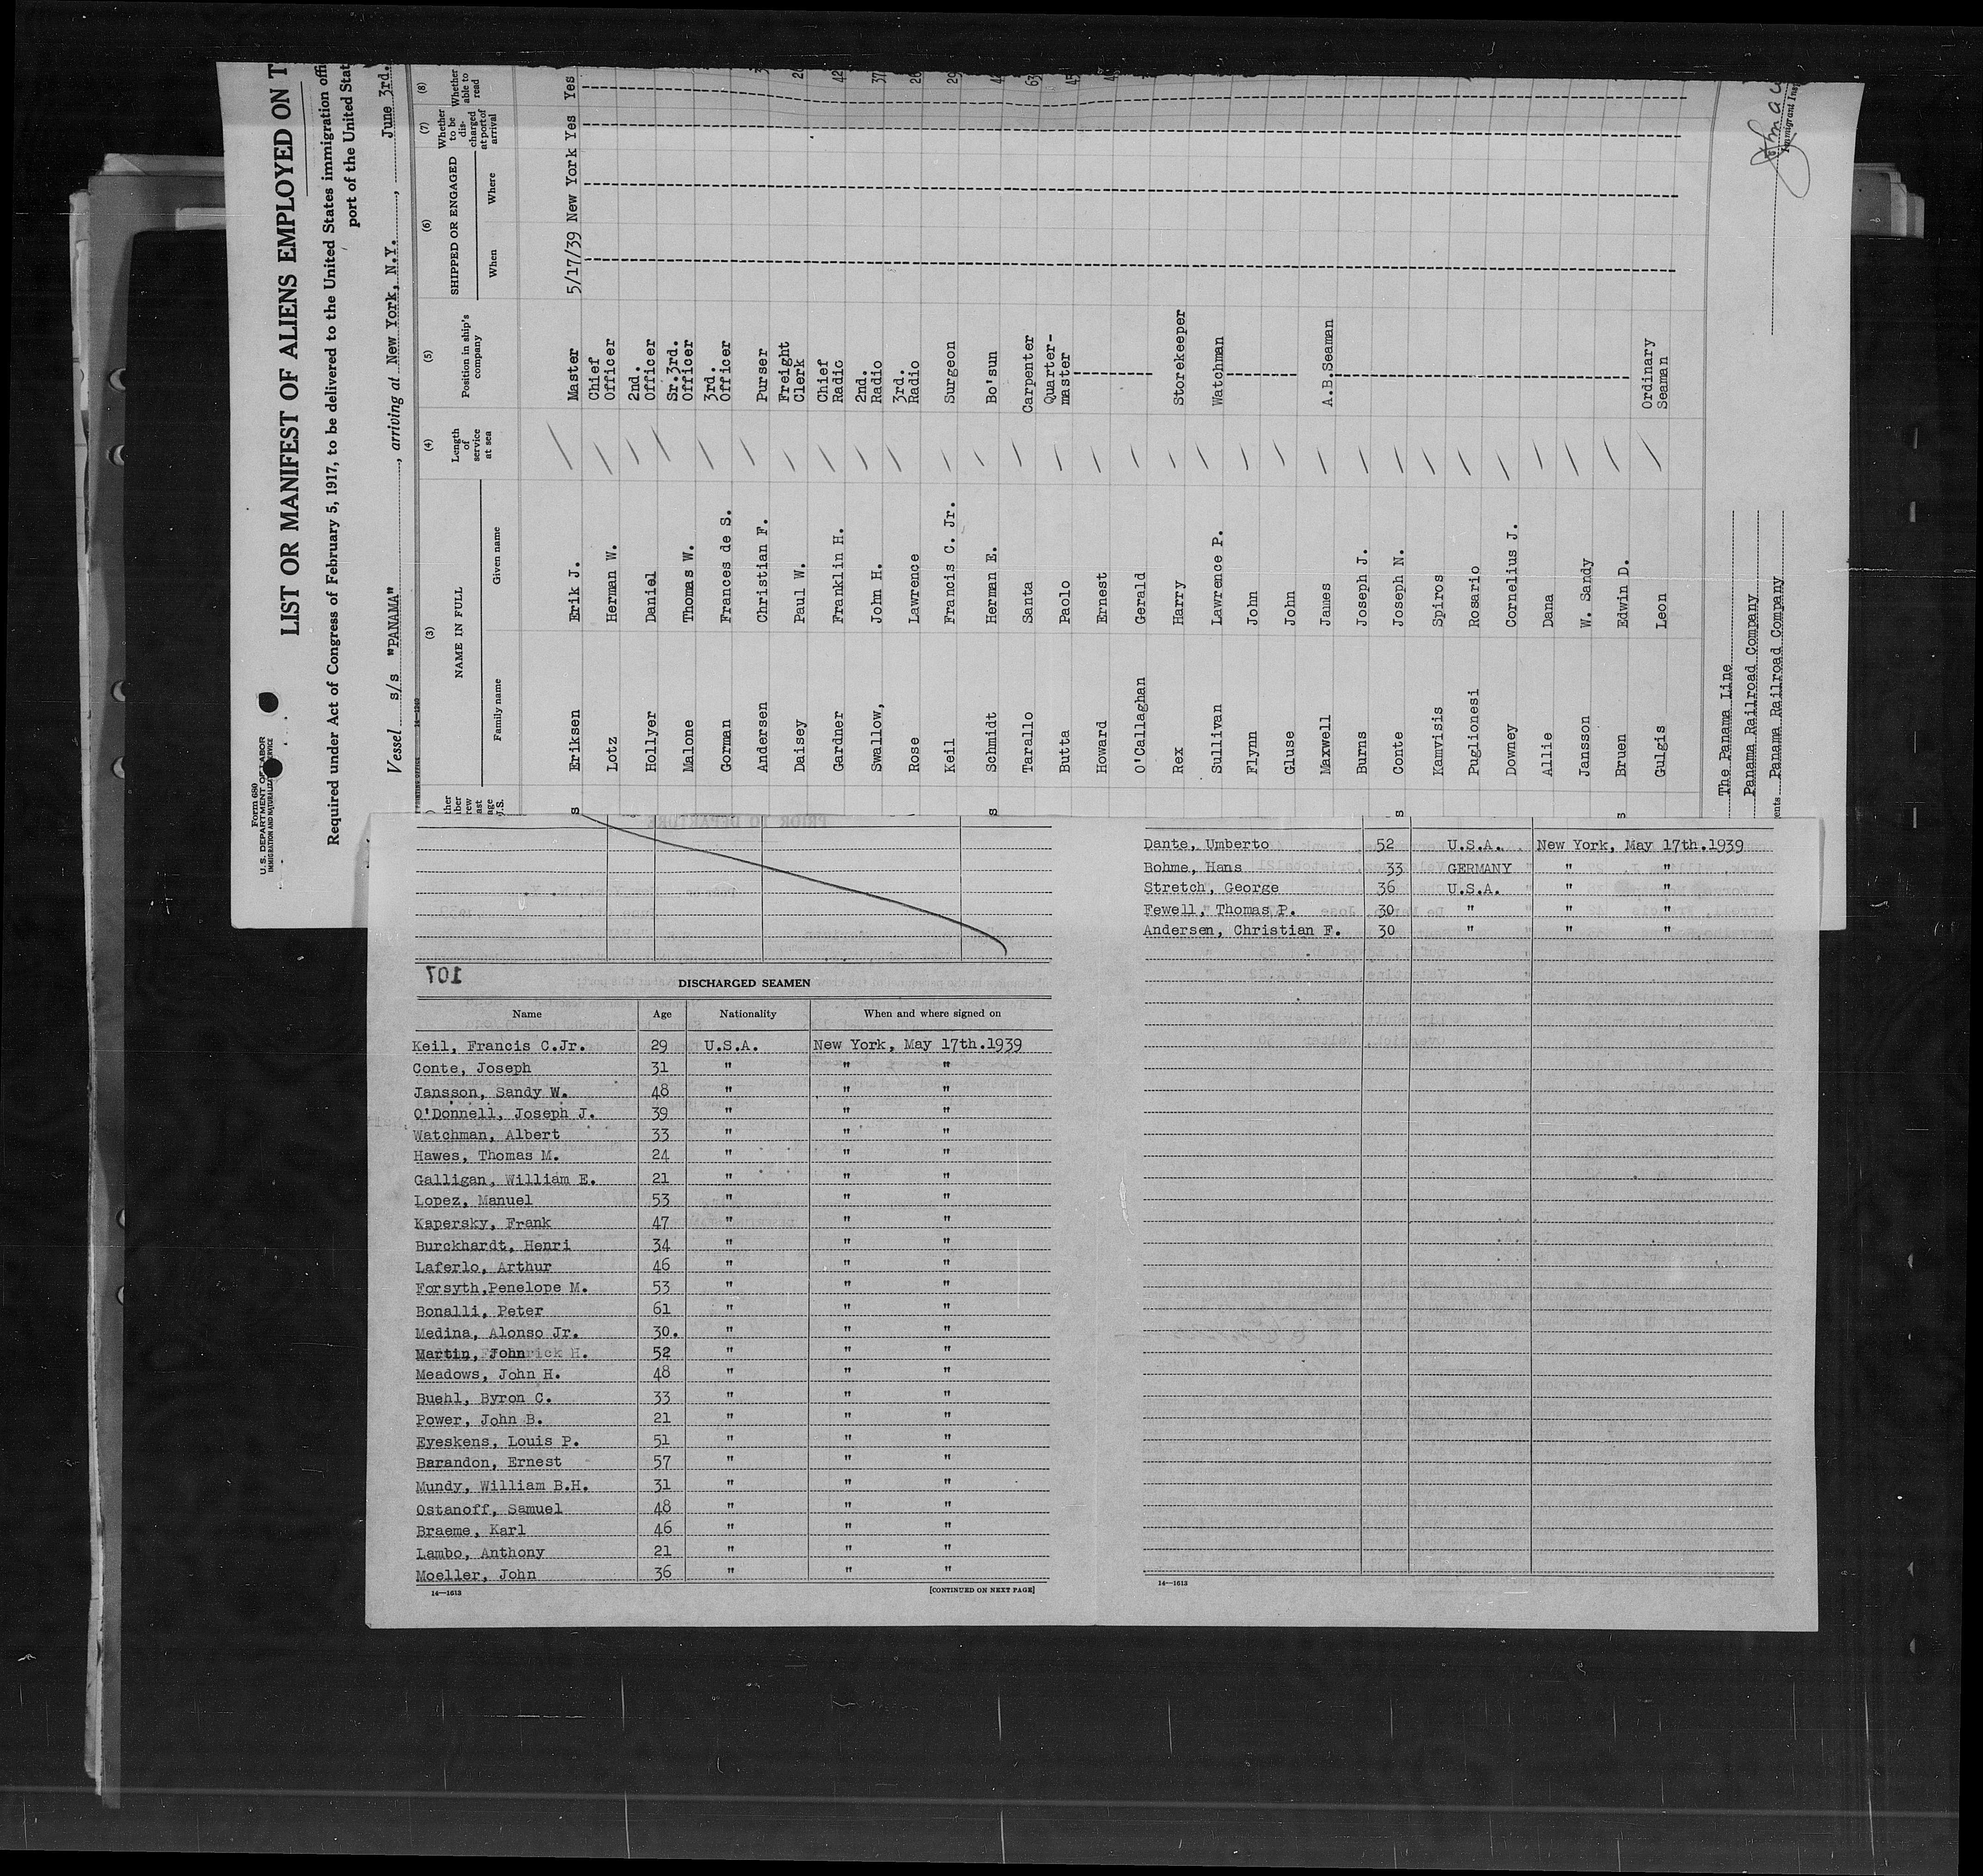 Form 680
U.S. DEPARTMENT OF LABOR
IMMIGRATION AND NATURALIZATION SERVICE
LIST OR MANIFEST OF ALIENS EMPLOYED ON T
Required under Act of Congress of February 5, 1917, to be delivered to the United States immigration offi
port of the United Stat
Vessel s/s "PANAMA", arriving at New York, N.Y., June 3rd.
(3) (4) (5) (6) (7) (8)
NAME IN FULL
Family name Given name
Length of service at sea
Position in ship's company
SHIPPED OR ENGAGED
When Where
Whether to be discharged at port of arrival
Whether able to read
Eriksen Erik J. Master 5/17/39 New York Yes Yes
Lotz Herman W. Chief Officer
Hollyer Daniel 2nd. Officer
Malone Thomas W. Sr.3rd. Officer
Gorman Frances de S. 3rd. Officer
Andersen Christian F. Purser
Daisey Paul W. Freight Clerk
Gardner Franklin H. Chief Radio 42
Swallow, John H. 2nd. Radio 37
Rose Lawrence 3rd. Radio
Keil Francis C. Jr. Surgeon 29
Schmidt Herman E. Bo'sun
Tarallo Santa Carpenter 63
Butta Paolo Quarter-master
Howard Ernest
O'Callaghan Gerald
Rex Harry Storekeeper
Sullivan Lawrence P. Watchman
Flynn John
Gluse John
Maxwell James A.B.Seaman
Burns Joseph J.
Conte Joseph N.
Kamvisis Spiros
Puglionesi Rosario
Downey Cornelius J.
Allie Dana
Jansson W. Sandy
Bruen Edwin D.
Gulgis Leon Ordinary Seaman
The Panama Line
Panama Railroad Company
Panama Railroad Company
107
DISCHARGED SEAMEN
Name Age Nationality When and where signed on
Keil, Francis C.Jr. 29 U.S.A. New York, May 17th.1939
Conte, Joseph 31 " " "
Jansson, Sandy W. 48 " " "
O'Donnell, Joseph J. 39 " " "
Watchman, Albert 33 " " "
Hawes, Thomas M. 24 " " "
Galligan, William E. 21 " " "
Lopez, Manuel 53 " " "
Kapersky, Frank 47 " " "
Burckhardt, Henri 34 " " "
Laferlo, Arthur 46 " " "
Forsyth,Penelope M. 53 " " "
Bonalli, Peter 61 " " "
Medina, Alonso Jr. 30. " " "
Martin, John 52 " " "
Meadows, John H. 48 " " "
Buehl, Byron C. 33 " " "
Power, John B. 21 " " "
Eyeskens, Louis P. 51 " " "
Barandon, Ernest 57 " " "
Mundy, William B.H. 31 " " "
Ostanoff, Samuel 48 " " "
Braeme, Karl 46 " " "
Lambo, Anthony 21 " " "
Moeller, John 36 " " "
14—1613 [CONTINUED ON NEXT PAGE]
Dante, Umberto 52 U.S.A. New York, May 17th.1939
Bohme, Hans 33 GERMANY " "
Stretch, George 36 U.S.A. " "
Fewell, Thomas P. 30 " " "
Andersen, Christian F. 30 " " "
14—1613